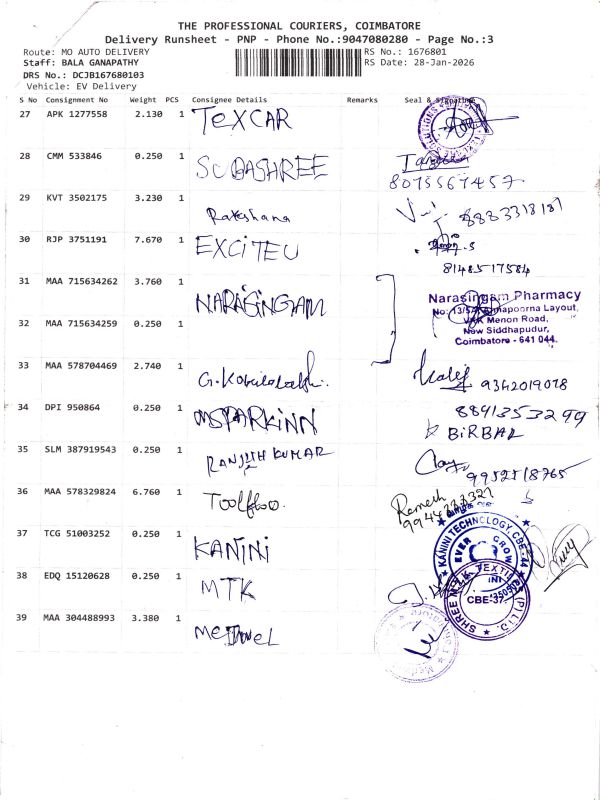 THE PROFESSIONAL COURIERS, COIMBATORE
Delivery Runsheet - PNP - Phone No.:9047080280 - Page No.:3
Route: MO AUTO DELIVERY RS No.: 1676801
Staff: BALA GANAPATHY RS Date: 28-Jan-2026
DRS No.: DCJB167680103
Vehicle: EV Delivery
S No Consignment No Weight PCS Consignee Details Remarks Seal & Signature
27 APK 1277558 2.130 1 TEXCAR
28 CMM 533846 0.250 1 SUBASHREE
8075567457
29 KVT 3502175 3.230 1 Rakshana 8883318181
30 RJP 3751191 7.670 1 EXCITEU
8148517584
31 MAA 715634262 3.760 1 NARASINGAM
Narasingam Pharmacy
No: 13/5A, Annapoorna Layout,
VKK Menon Road,
New Siddhapudur,
Coimbatore - 641 044.
32 MAA 715634259 0.250 1
33 MAA 578704469 2.740 1 9342019078
34 DPI 950864 0.250 1 MSPARKINN 8891353299
BIRBAL
35 SLM 387919543 0.250 1 RANJITH KUMAR 9952518765
36 MAA 578329824 6.760 1 Toolfloo Ramesh
37 TCG 51003252 0.250 1 KANINI
KANINI TECHNOLOGY CBE-44
EVER GROW
38 EDQ 15120628 0.250 1 MTK
SHREE MTK TEXTILE (P) LTD.
CBE-37
39 MAA 304488993 3.380 1